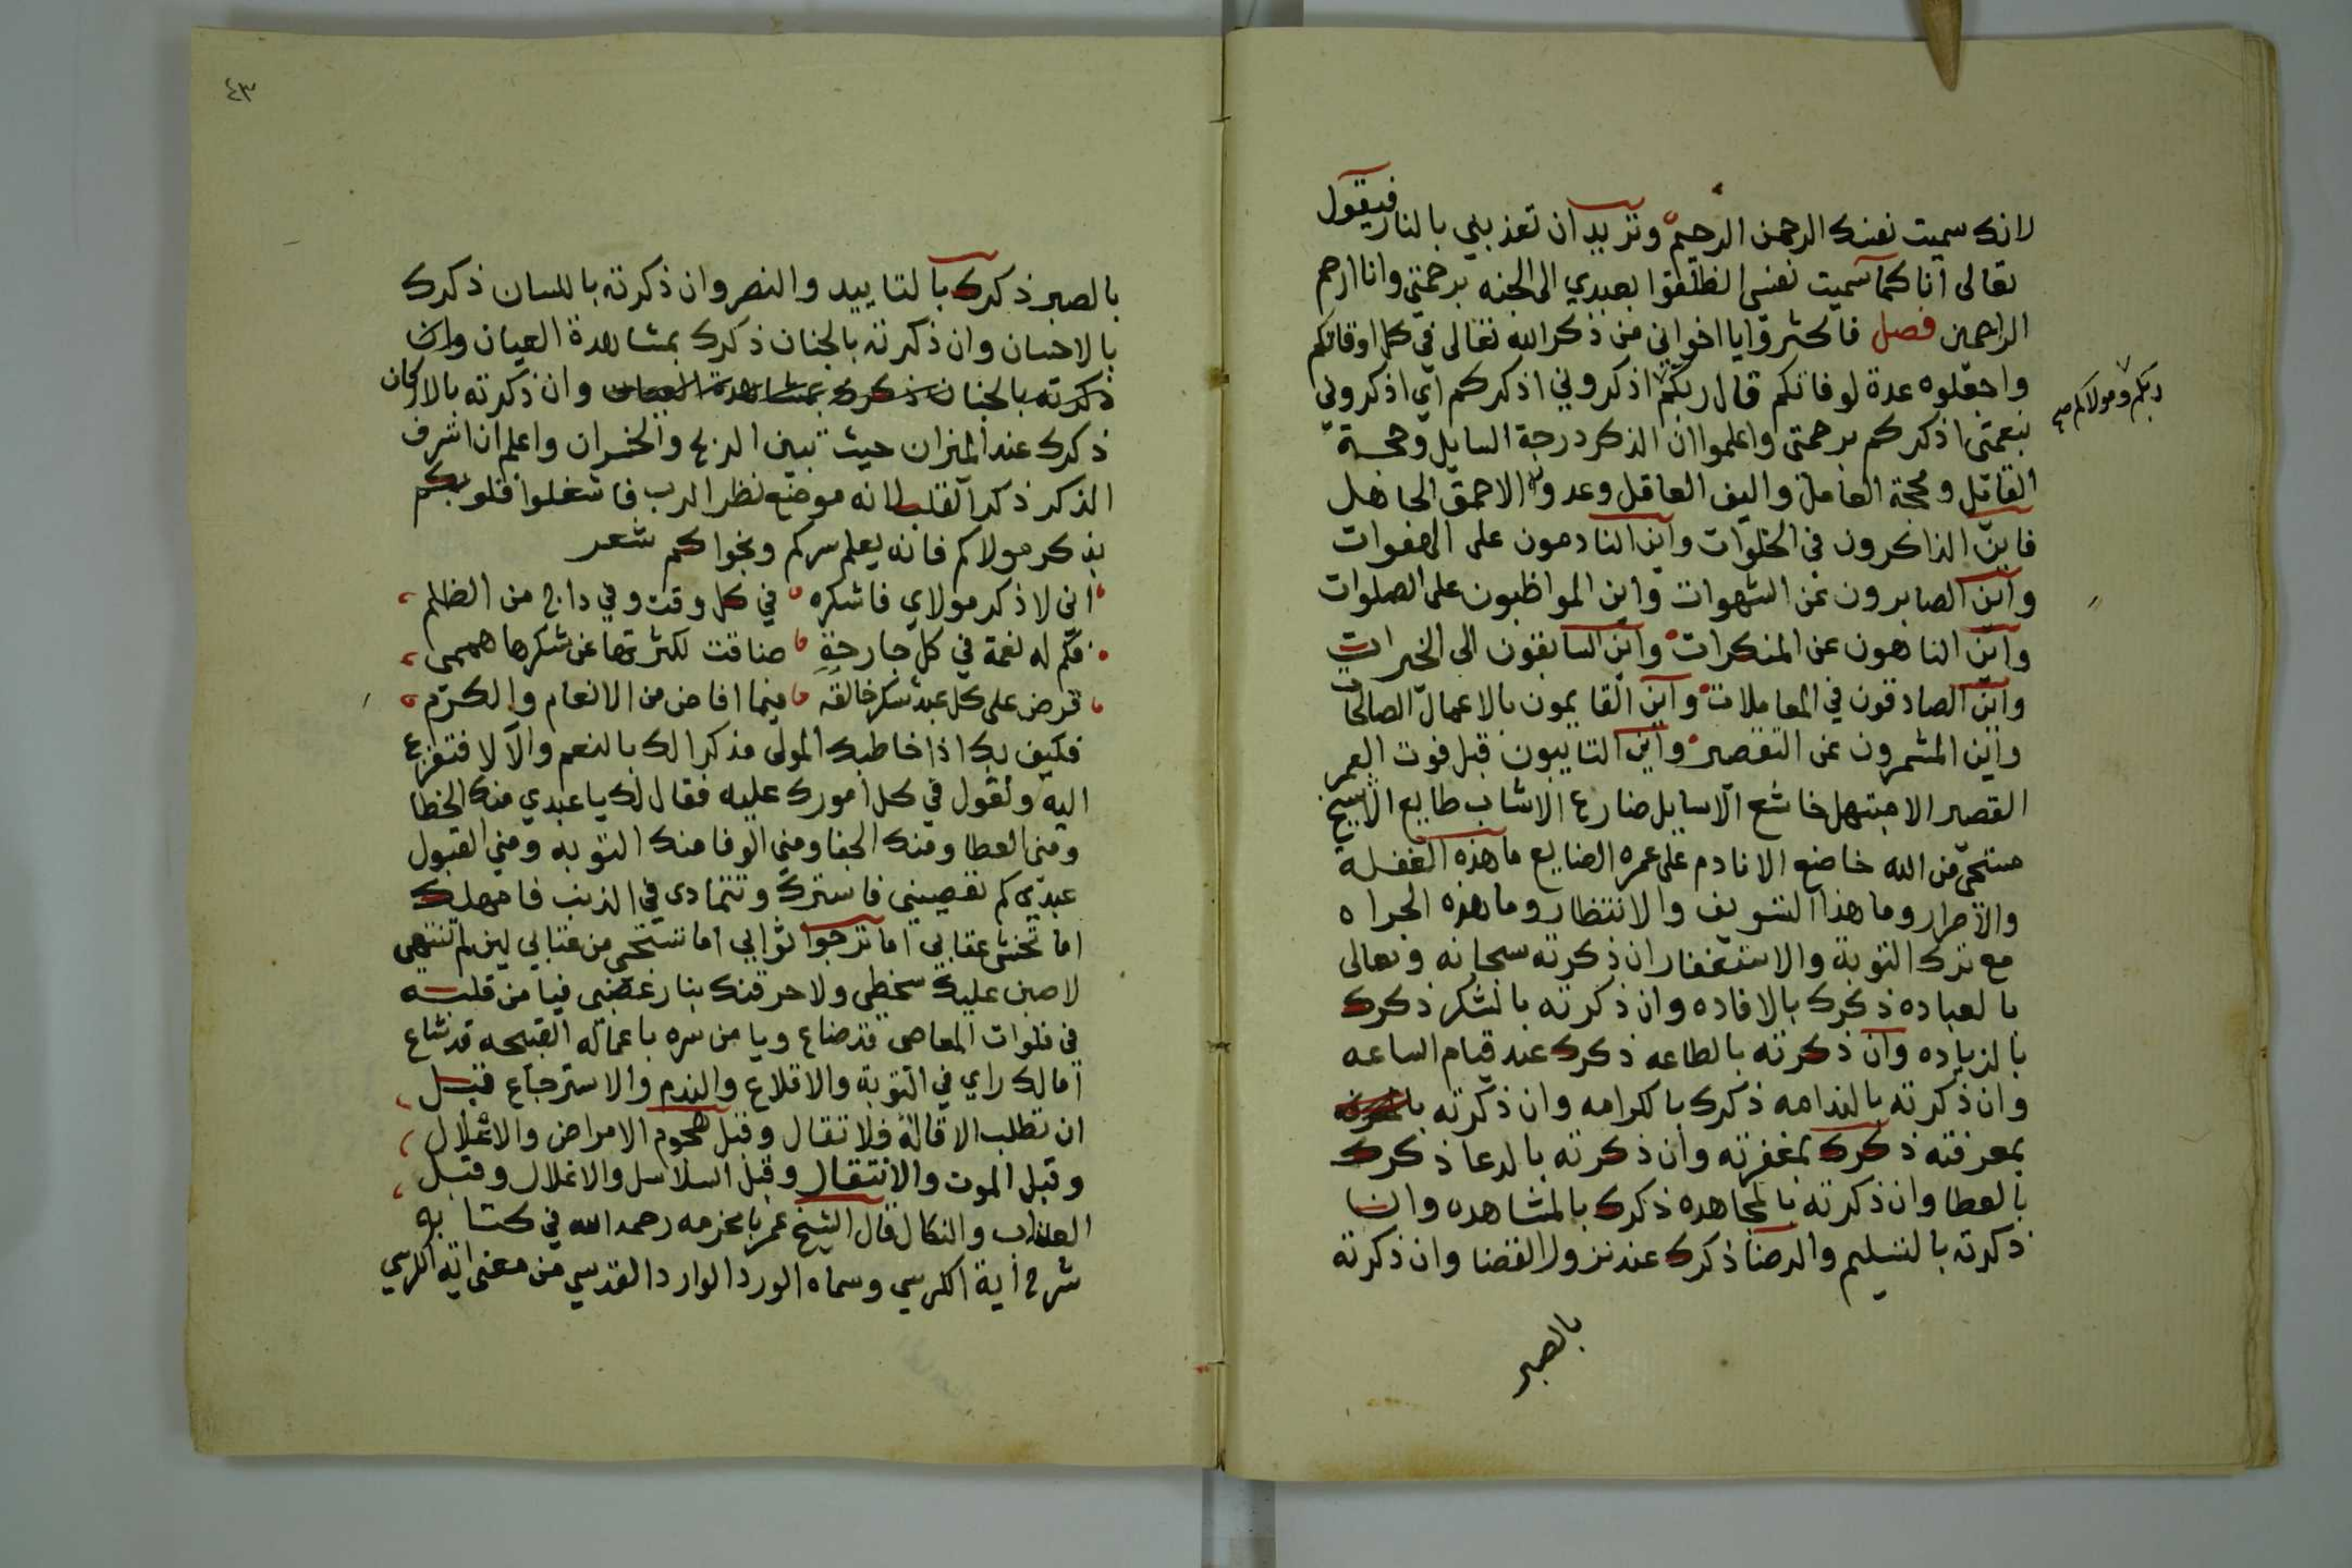 لانك سميت نفسك الرحمن الرحيم وتريد ان تعذبني بالنار فيقول
تعالى انا كما سميت نفسي انطلقوا بعبدي الى الجنه برحمتي وانا ارحم
الراحمين فصل فاكثروا يا اخواني من ذكر الله تعالى في كل اوقاتكم
واجعلوه عدة لوفاتكم قال ربكم اذكروني اذكركم اي اذكروني
ربكم ومولاكم صح
بنعمتي اذكركم برحمتي واعلموا ان الذكر درجة السايل وحجة
القايل ومحجة العامل واليف العاقل وعدو الاحمق الجاهل
فاين الذاكرون في الخلوات واين النادمون على الهفوات
واين الصابرون عن الشهوات واين المواظبون على الصلوات
واين الناهون عن المنكرات واين السابقون الى الخيرات
واين الصادقون في المعاملات واين القايمون بالاعمال الصالحات
واين المشمرون عن التقصير واين التايبون قبل فوت العمر
القصير الا مبتهل خاشع الا سايل ضارع الا شاب طايع الا شيخ
مستحي من الله خاضع الا نادم على عمره الضايع ما هذه الغفلة
والاصرار وما هذا التسويف والانتظار وما هذه الجراه
مع ترك التوبة والاستغفار ان ذكرته سبحانه وتعالى
بالعباده ذكرك بالافاده وان ذكرته بالشكر ذكرك
بالزياده وان ذكرته بالطاعه ذكرك عند قيام الساعه
وان ذكرته بالندامه ذكرك بالكرامه وان ذكرته
بمعرفته ذكرك بمغفرته وان ذكرته بالدعا ذكرك
بالعطا وان ذكرته بالمجاهده ذكرك بالمشاهده وان
ذكرته بالتسليم والرضا ذكرك عند نزول القضا وان ذكرته
بالصبر
٤٣
بالصبر ذكرك بالتاييد والنصر وان ذكرته باللسان ذكرك
بالاحسان وان ذكرته بالجنان ذكرك بمشاهدة العيان وان
ذكرته بالجنان ذكرك بمشاهدة العيان وان ذكرته بالاركان
ذكرك عند الميزان حيث تبين الربح والخسران واعلم ان اشرف
الذكر ذكر القلب لانه موضع نظر الرب فاشغلوا قلوبكم
بذكر مولاكم فانه يعلم سركم ونجواكم شعر
اني لاذكر مولاي فاشكره في كل وقت وفي داج من الظلم
فكم له نعمة في كل جارحة ضاقت لكثرتها عن شكرها هممي
فرض على كل عبد شكر خالقه فيما افاض من الانعام والكرم
فكيف بك اذا خاطبك المولى مذكرا لك بالنعم والالا فتفزع
اليه وتقول في كل امورك عليه فقال لك يا عبدي منك الخطا
ومني العطا ومنك الجفا ومني الوفا منك التوبه ومني القبول
عبدي كم تعصيني فاسترك وتتمادى في الذنب فامهلك
اما تخشى عقابي اما ترجوا ثوابي اما تستحي من عتابي لين لم تنتهي
لاصبن عليك سخطي ولاحرقنك بنار غضبي فيا من قلبه
في فلوات المعاصي قد ضاع ويا من سره باعماله القبيحه قد شاع
اما لك راي في التوبة والاقلاع والندم والاسترجاع قبل
ان تطلب الاقالة فلا تقال وقبل هجوم الامراض والاعلال
وقبل الموت والانتقال وقبل السلاسل والاغلال وقبل
العذاب والنكال قال الشيخ عمر بامخرمه رحمه الله في كتابه
شرح اية الكرسي وسماه الورد الوارد القدسي من معنى اية الكرسي